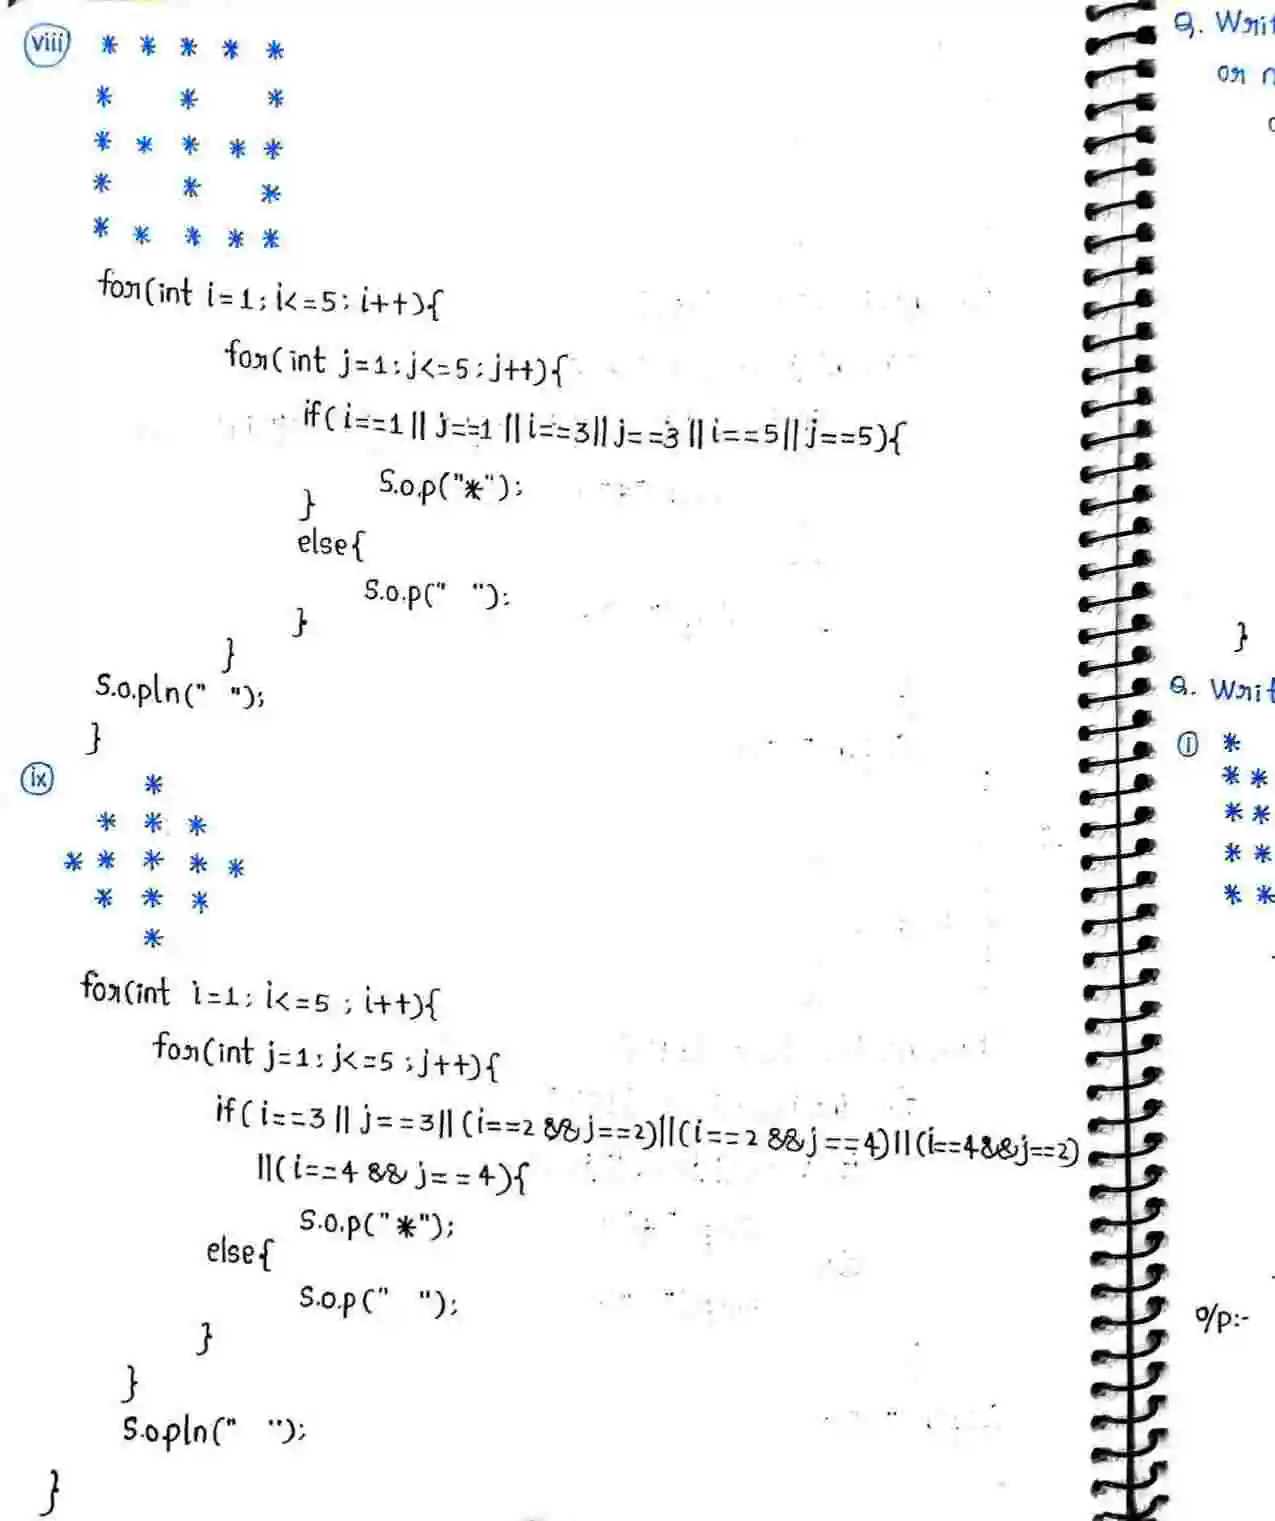 viii * * * * *
* * *
* * * * *
* * *
* * * * *
for(int i=1; i<=5; i++){
for(int j=1; j<=5; j++){
if(i==1 || j==1 || i==3 || j==3 || i==5 || j==5){
S.o.p("*");
}
else{
S.o.p(" ");
}
}
S.o.pln(" ");
}
ix *
* * *
* * * * *
* * *
*
for(int i=1; i<=5; i++){
for(int j=1; j<=5; j++){
if(i==3 || j==3 || (i==2 && j==2) || (i==2 && j==4) || (i==4 && j==2)
|| (i==4 && j==4){
S.o.p("*");
else{
S.o.p(" ");
}
}
S.o.pln(" ");
}
Q. Writ
or
}
Q. Writ
i *
* *
* *
* *
* *
o/p:-